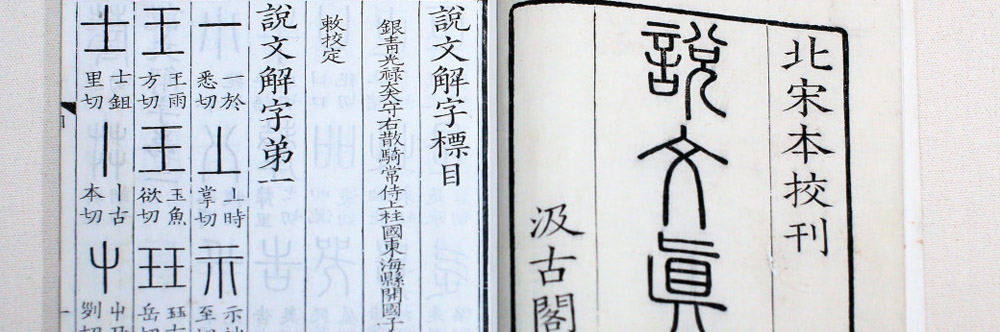 北宋本挍刊
說文眞
汲古閣
說文解字標目
銀青光祿大夫守右散騎常侍上柱國東海縣開國子
敕挍定
說文解字弟一
一於悉切丄丄時掌切示示神至切
王王雨方切王玉魚欲切玨玨古岳切
士士鉏里切丨丨古本切屮屮